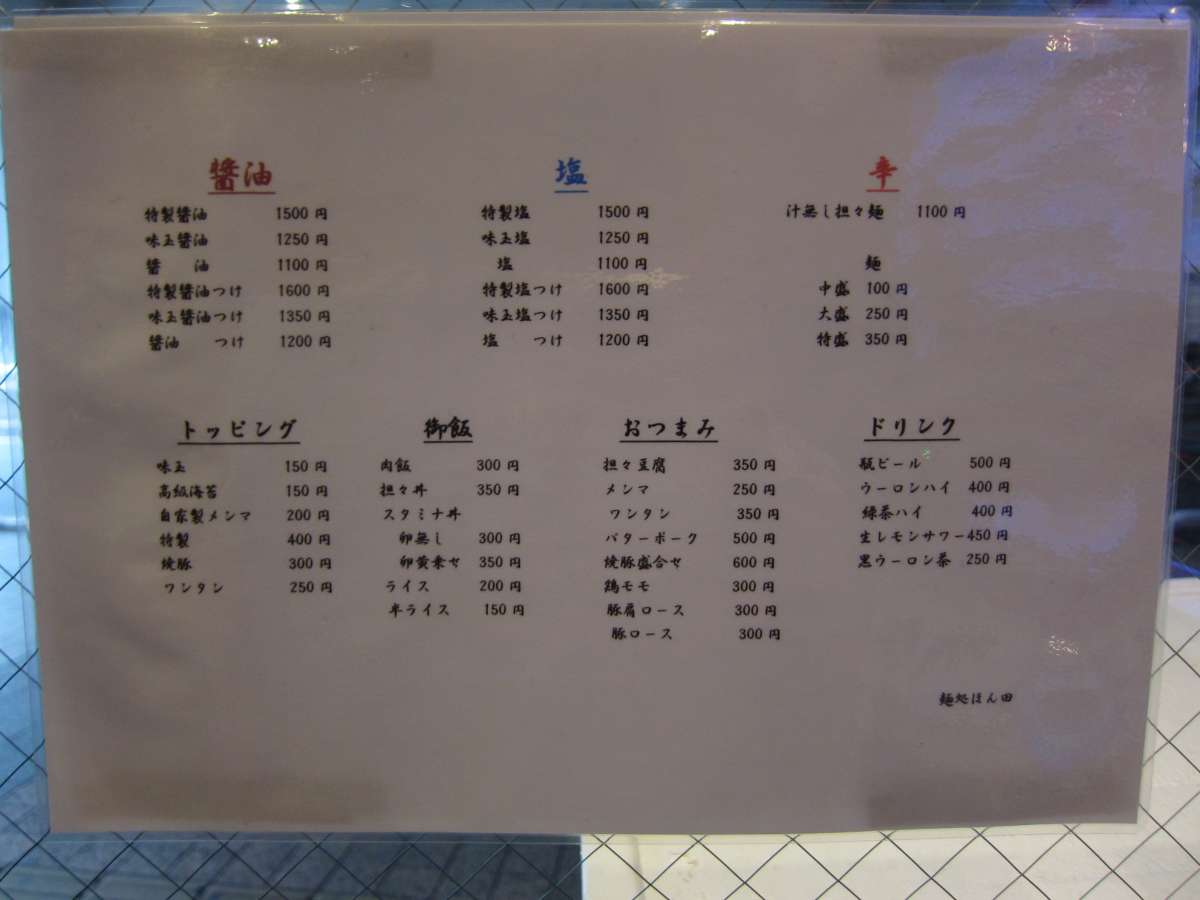 醤油
特製醤油 1500円
味玉醤油 1250円
醤 油 1100円
特製醤油つけ 1600円
味玉醤油つけ 1350円
醤油 つけ 1200円
塩
特製塩 1500円
味玉塩 1250円
塩 1100円
特製塩つけ 1600円
味玉塩つけ 1350円
塩 つけ 1200円
辛
汁無し担々麺 1100円
麺
中盛 100円
大盛 250円
特盛 350円
トッピング
味玉 150円
高級海苔 150円
自家製メンマ 200円
特製 400円
焼豚 300円
ワンタン 250円
御飯
肉飯 300円
担々丼 350円
スタミナ丼
卵無し 300円
卵黄乗せ 350円
ライス 200円
半ライス 150円
おつまみ
担々豆腐 350円
メンマ 250円
ワンタン 350円
バターポーク 500円
焼豚盛合せ 600円
鶏モモ 300円
豚肩ロース 300円
豚ロース 300円
ドリンク
瓶ビール 500円
ウーロンハイ 400円
緑茶ハイ 400円
生レモンサワー450円
黒ウーロン茶 250円
麺処ほん田